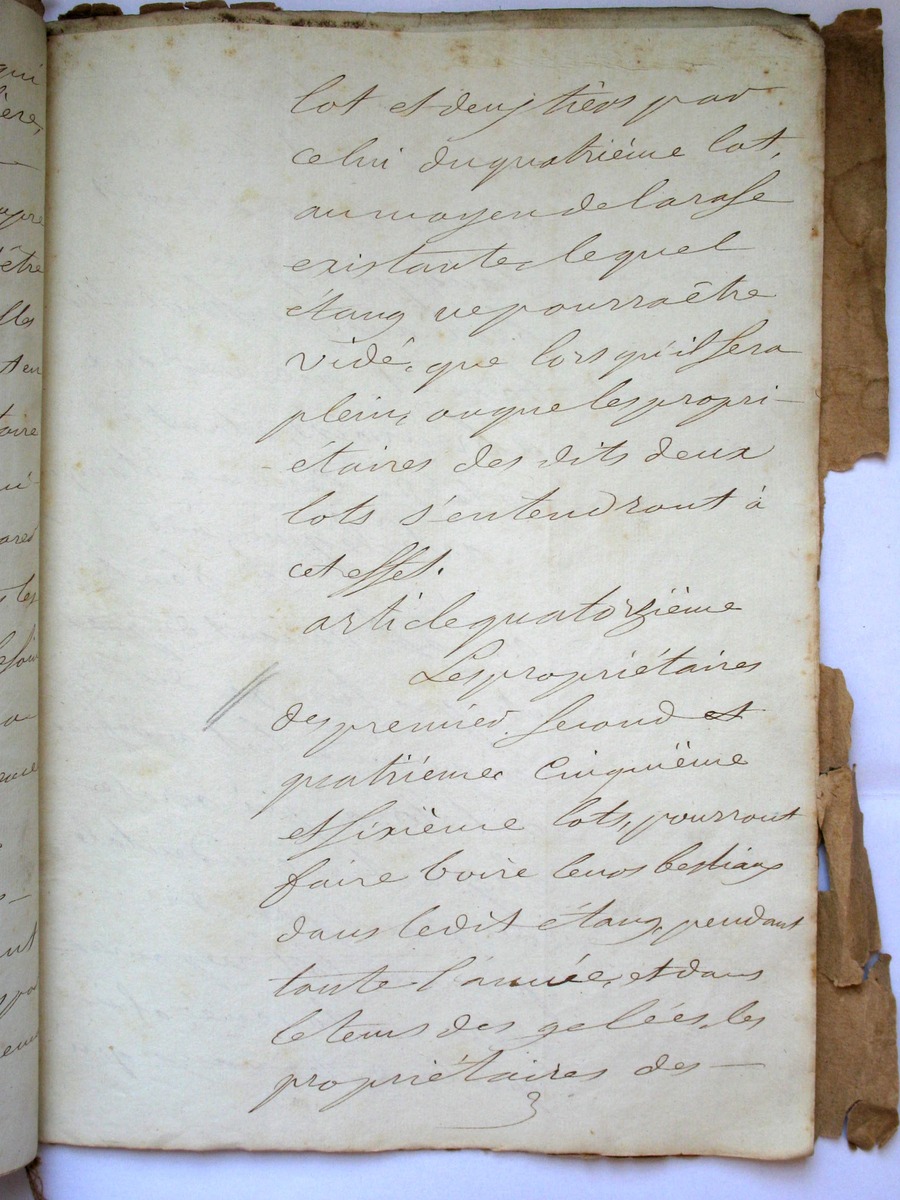 qui
ière,
être
lles
t en
toire
les
lot et deux tiers par
celui du quatrième lot,
au moyen de la rase
existante, lequel
étang ne pourra être
vidé, que lors qu'il sera
plein, ou que les propri-
étaires des dits deux
lots s'entendront à
cet effet.
article quatorzième
Les propriétaires
des premier, second et
quatrième, cinquième
et sixième lots, pourront
faire boire leurs bestiaux
dans le dit étang, pendant
toute l'année, et dans
le tems des gelées, les
propriétaires des —